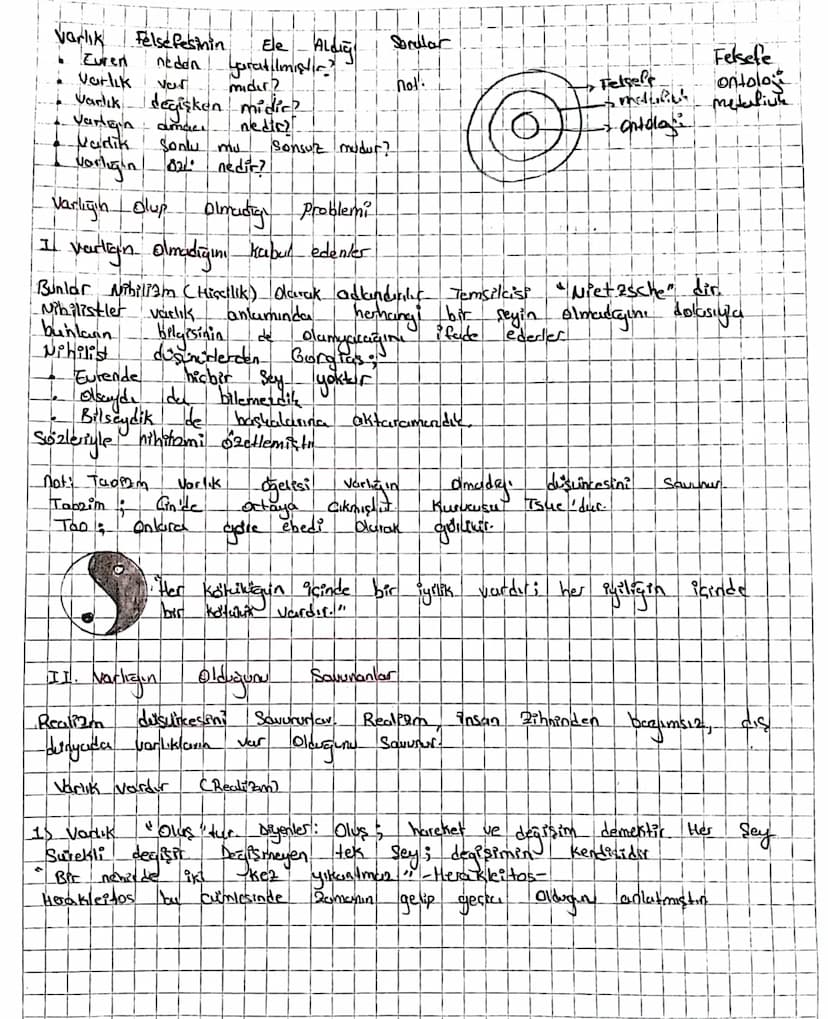 Varlık Felsefesinin Ele Aldığı Sorular
• Evren neden yaratılmıştır?
• Varlık var mıdır?
• Varlık değişken midir?
• Varlığın amacı nedir?
• Varlık sonlu mu sonsuz mudur?
• Varlığın özü nedir?
not:
Felsefe
metafizik
ontoloji
Felsefe
ontoloji
metafizik
Varlığın Olup Olmadığı Problemi
I. Varlığın Olmadığını Kabul edenler
Bunlar Nihilizm (Hiççilik) olarak adlandırılır. Temsilcisi "Nietzsche" dir.
Nihilistler varlık anlamında herhangi bir şeyin olmadığını dolasıyla
bunların bilgisinin de olamıyacağını ifade ederler
Nihilist düşünürlerden Gorgias;
• Evrende hiçbir şey yoktur
• Olsaydı da bilemezdik
• Bilseydik de başkalarına aktaramazdık.
Sözleriyle nihilizmi özetlemiştir
not: Taoizm varlık öğretisi varlığın olmadığı düşüncesini savunur.
Taoizm; Çin'de ortaya çıkmıştır. Kurucusu 'dur.
Tao; onlara göre ebedi olarak görülür.
"Her kötülüğün içinde bir iyilik vardır; her iyiliğin içinde
bir kötülük vardır."
II. Varlığın Olduğunu Savunanlar
Realizm düşüncesini Savunurlar. Realizm, insan zihninden bağımsız, dış
dünyada varlıkların var olduğunu savunur.
Varlık vardır (Realizm)
1) Varlık "Oluş"tur Diyenler: Oluş; hareket ve değişim demektir. Her şey
Sürekli değişir Değişmeyen tek şey; değişimin kendisidir
"Bir nehirde iki kez yıkanılmaz" -Herakleitos-
Herakleitos bu cümlesinde zamanın gelip geçici olduğun anlatmıştır